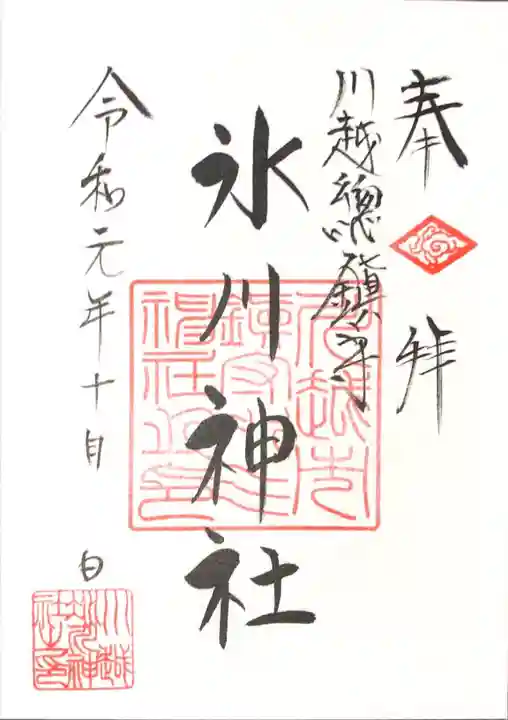 奉拝
川越總鎮守
氷川神社
令和元年十月 日
川越
氷川神
社之印